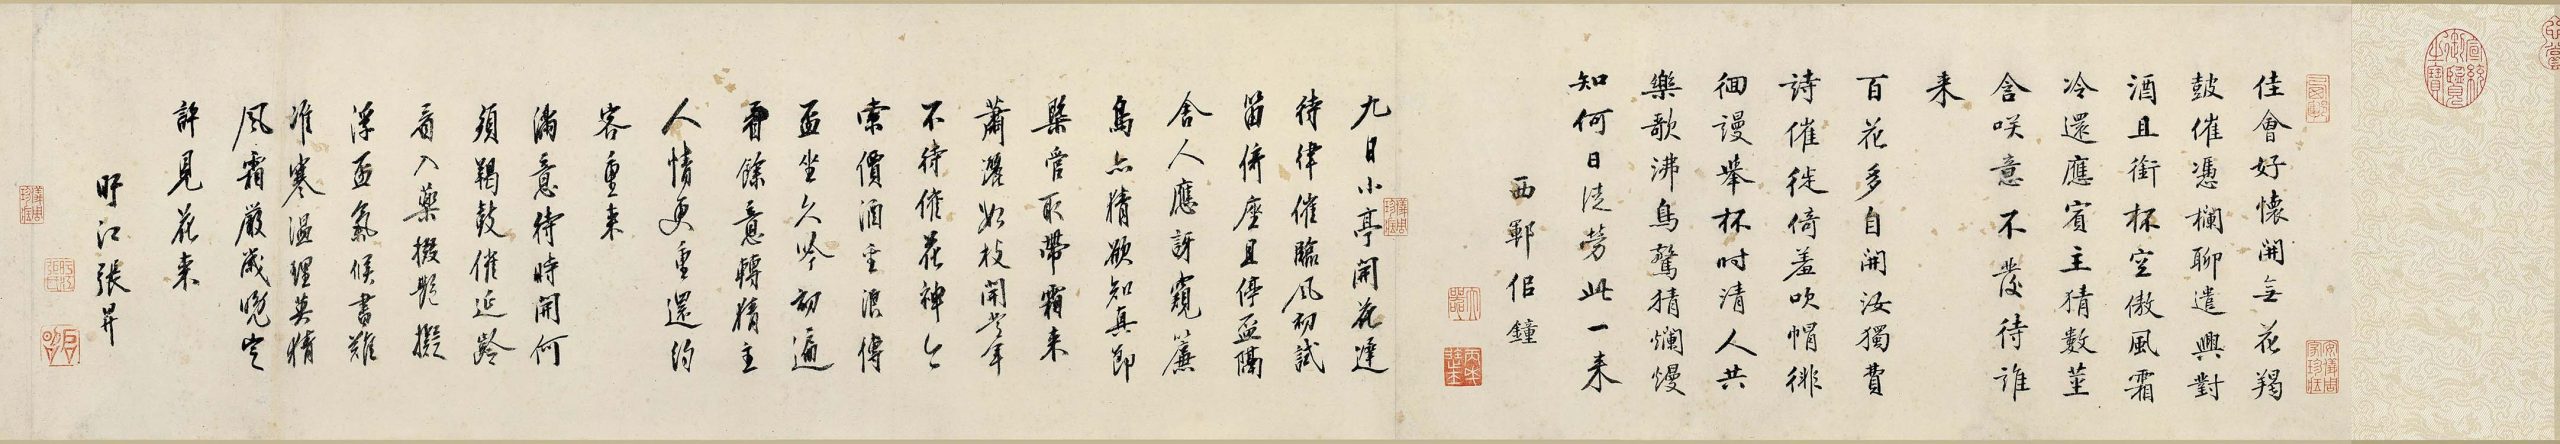 佳會好懷開無花羯
鼓催憑欄聊遣興對
酒且銜杯空傲風霜
冷還應賓主猜數莖
含咲意不發待誰
来
百花多自開汝獨費
詩催徙倚羞吹帽徘
徊謾舉杯时清人共
樂歌沸鳥驚猜爛熳
知何日徒勞此一来
西鄆侶鐘
九日小亭開花遲
待律催臨风初試
笛倚座且停盃隔
舍人應訝窺簾
鳥亦猜欲知真節
槩管取帶霜来
蕭灑數枝開常年
不待催花神今
索價酒聖浪傳
盃坐久吟初遍
看餘意轉猜主
人情更重還約
客重来
滿意待時開何
須羯鼓催延齡
看入藥掇艷擬
浮盃氣候書難
准寒溫理莫猜
風霜嚴歲晚它
許見花来
盱江張昇
宣統御覽之寶
安儀周家珍藏
儀周珍藏